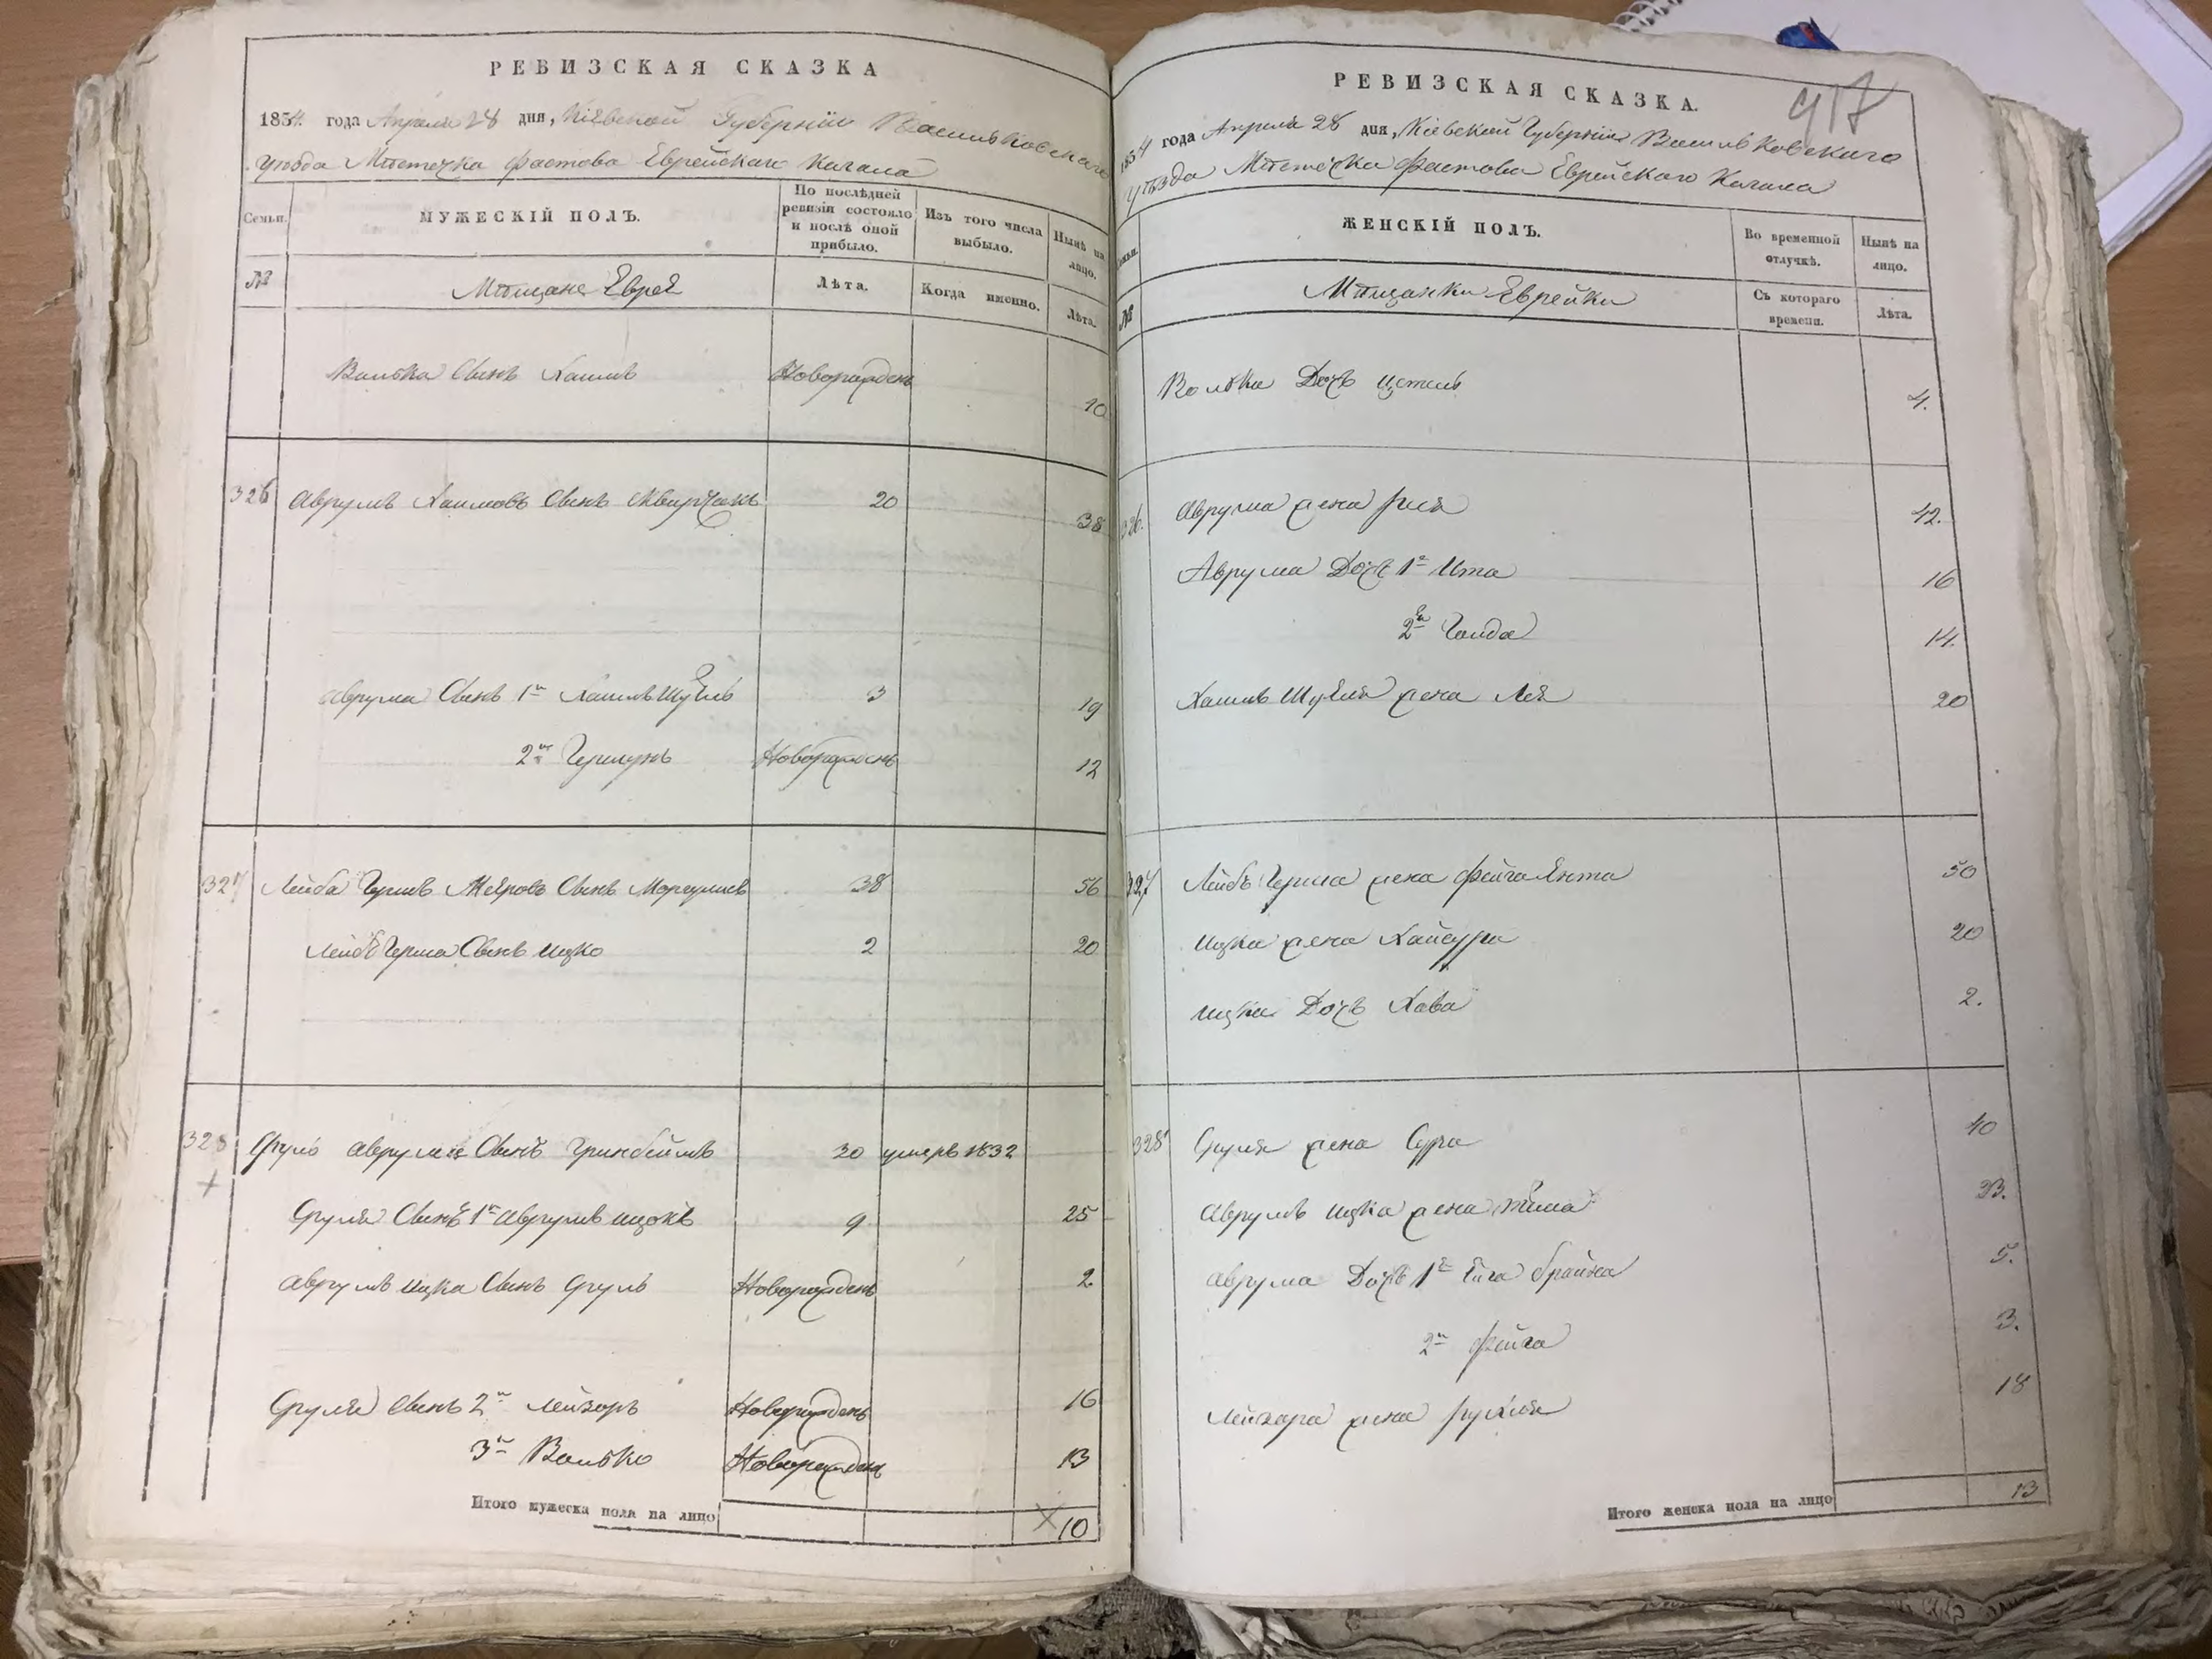 РЕВИЗСКАЯ СКАЗКА
1854 года Апреля 28 дня, Кіевской Губерніи Васильковскаго
уезда Мѣстечка Фастова Еврейскаго Кагала
Семьи.
МУЖЕСКІЙ ПОЛЪ.
По послѣдней ревизіи состояло и послѣ оной прибыло.
Изъ того числа выбыло.
Нынѣ на лицо.
№
Мѣщане Евреи
Лѣта.
Когда именно.
Лѣта.
Вольки Сынъ Хаимъ Новорожденъ 10
326 Аврумъ Хаимовъ Сынъ Сквирчакъ 20 38
Аврума Сынъ 1й Хаимъ Шуель 3 19
2й Гершунъ Новорожденъ 12
327 Лейба Гершъ Мееровъ Сынъ Моргулисъ 38 56
Лейбъ Герша Сынъ Ицко 2 20
328 Сруль Аврумов Сынъ Гринбеймъ 30 умеръ 1832
Сруля Сынъ 1й Аврумъ Ицокъ 9 25
Аврумъ Ицка Сынъ Сруль Новорожденъ 2
Сруля Сынъ 2й Лейзоръ Новорожденъ 16
3й Волько Новорожденъ 13
Итого мужеска пола на лицо 10
РЕВИЗСКАЯ СКАЗКА.
917
1854 года Апреля 28 дня, Кіевской Губерніи Васильковскаго
Уѣзда Мѣстечка Фастова Еврейскаго Кагала
Семьи.
ЖЕНСКІЙ ПОЛЪ.
Во временной отлучкѣ.
Нынѣ на лицо.
№
Мѣщанки Еврейки
Съ котораго времени.
Лѣта.
Волька Дочъ 4.
326. Аврума жена Рися 42.
Аврума Дочъ 1я Ита 16
2я Голда 14.
Хаимъ Шуеля жена Лея 20
327 Лейбъ Герша жена Фейга Ента 50
Ицка жена Хайсура 20
Ицка Дочъ Хава 2.
328 Сруля жена Сура 40
Аврумъ Ицка жена 23.
Аврума Дочъ 1я Брайна 5.
2я Фейга 3.
Лейзора жена Рухля 18
Итого женска пола на лицо 13